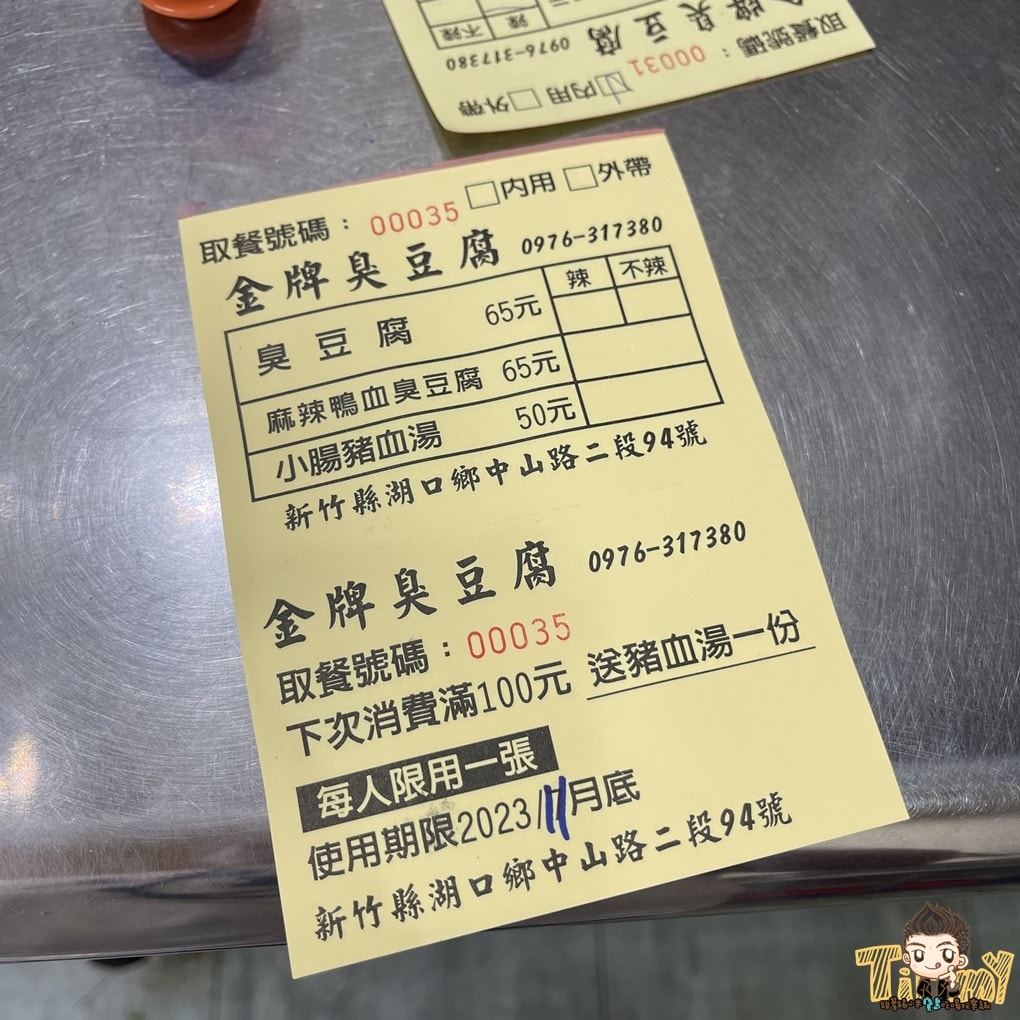 不辣 辣
0976-317380 金牌臭豆腐
取餐號碼： 00031
□內用 □外帶
取餐號碼： 00035 □内用 □外帶
金牌臭豆腐 0976-317380
辣 不辣
臭豆腐 65元
麻辣鴨血臭豆腐 65元
小腸豬血湯 50元
新竹縣湖口鄉中山路二段94號
金牌臭豆腐 0976-317380
取餐號碼：00035
下次消費滿100元 送豬血湯一份
每人限用一張
使用期限2023/11月底
新竹縣湖口鄉中山路二段94號